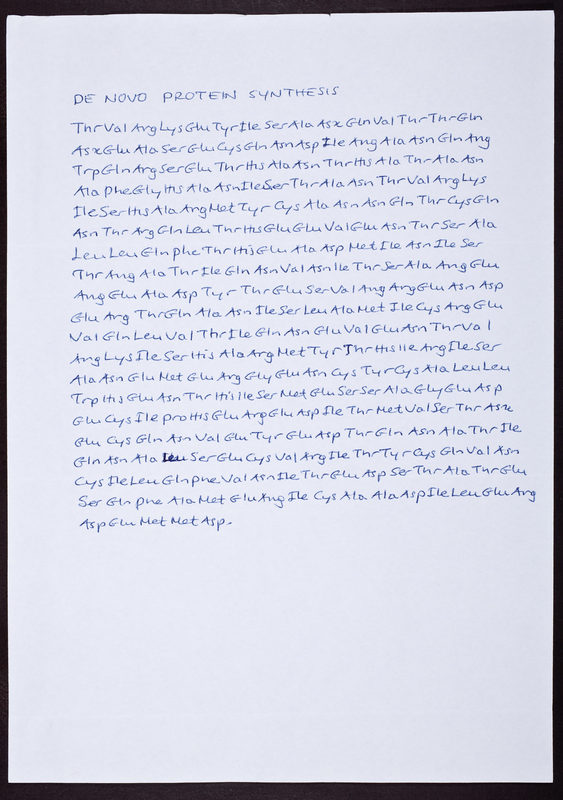 DE NOVO PROTEIN SYNTHESIS
ThrValArgLysGluTyrIleSerAlaAsxGlnValThrThrGln
AsxGluAlaSerGluCysGlnAsnAspIleArgAlaAsnGlnArg
TrpGlnArgSerGluThrHisAlaAsnThrHisAlaThrAlaAsn
AlaPheGlyHisAlaAsnIleSerThrAlaAsnThrValArgLys
IleSerHisAlaArgMetTyrCysAlaAsnAsnGlnThrCysGln
AsnThrArgGlnLeuThrHisGluGluValGluAsnThrSerAla
LeuLeuGlnPheThrHisGluAlaAspMetIleAsnIleSer
ThrArgAlaThrIleGlnAsnValAsnIleThrSerAlaArgGlu
ArgGluAlaAspTyrThrGluSerValArgArgGluAsnAsp
GluArgThrGlnAlaAsnIleSerLeuAlaMetIleCysArgGlu
ValGlnLeuValThrIleGlnAsnGluValGluAsnThrVal
ArgLysIleSerHisAlaArgMetTyrThrHisIleArgIleSer
AlaAsnGluMetGluArgGlyGluAsnCysTyrCysAlaLeuLeu
TrpHisGluAsnThrHisIleSerMetGluSerSerAlaGlyGluAsp
GluCysIleProHisGluArgGluAspIleThrMetValSerThrAsx
GluCysGlnAsnValGluTyrGluAspThrGlnAsnAlaThrIle
GlnAsnAlaLeuSerGluCysValArgIleThrTyrCysGlnValAsn
CysIleLeuGlnPheValAsnIleThrGluAspSerThrAlaThrGlu
SerGlnPheAlaMetGluArgIleCysAlaAlaAspIleLeuGluArg
AspGluMetMetAsp.